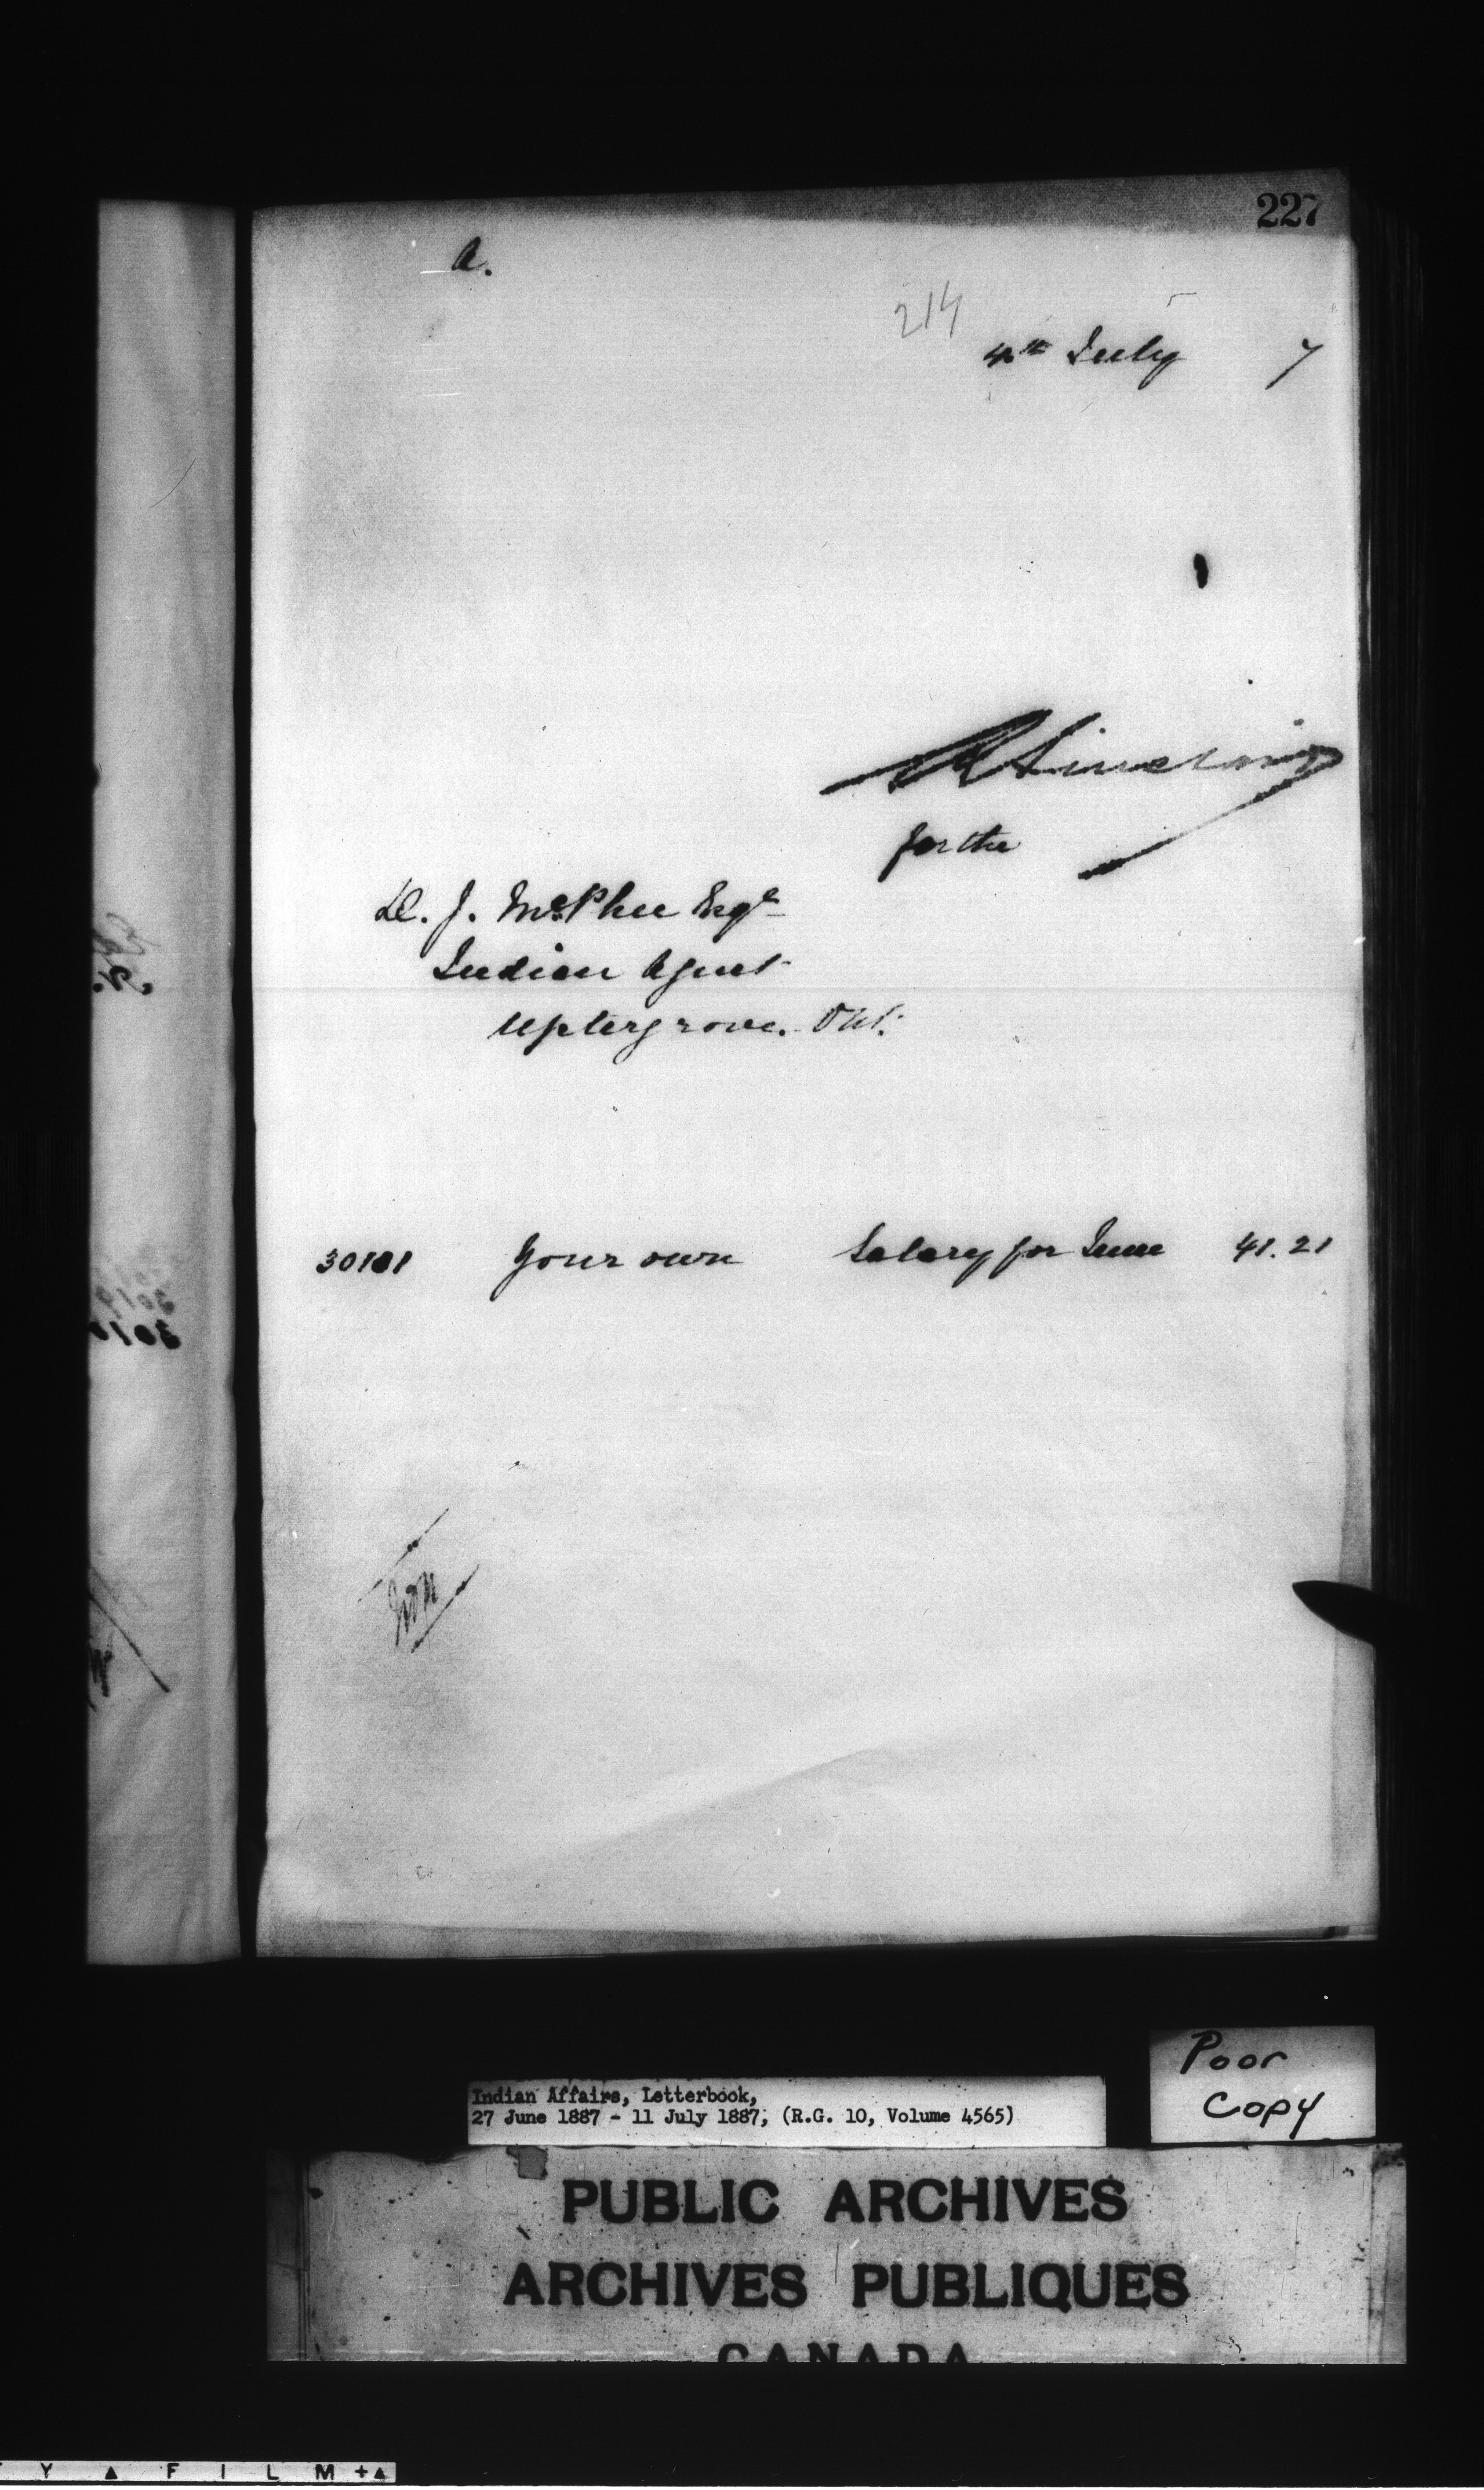 227
a.
214
4th July 7
R Sinclair
for the
D. J. McPhee Esqe
Indian Agent
Uptergrove. Ont.
30181 Your own Salary for June 41.21
Poor
Copy
Indian Affairs, Letterbook,
27 June 1887 - 11 July 1887, (R.G. 10, Volume 4565)
PUBLIC ARCHIVES
ARCHIVES PUBLIQUES
CANADA
Y ▲ F I L M +▲